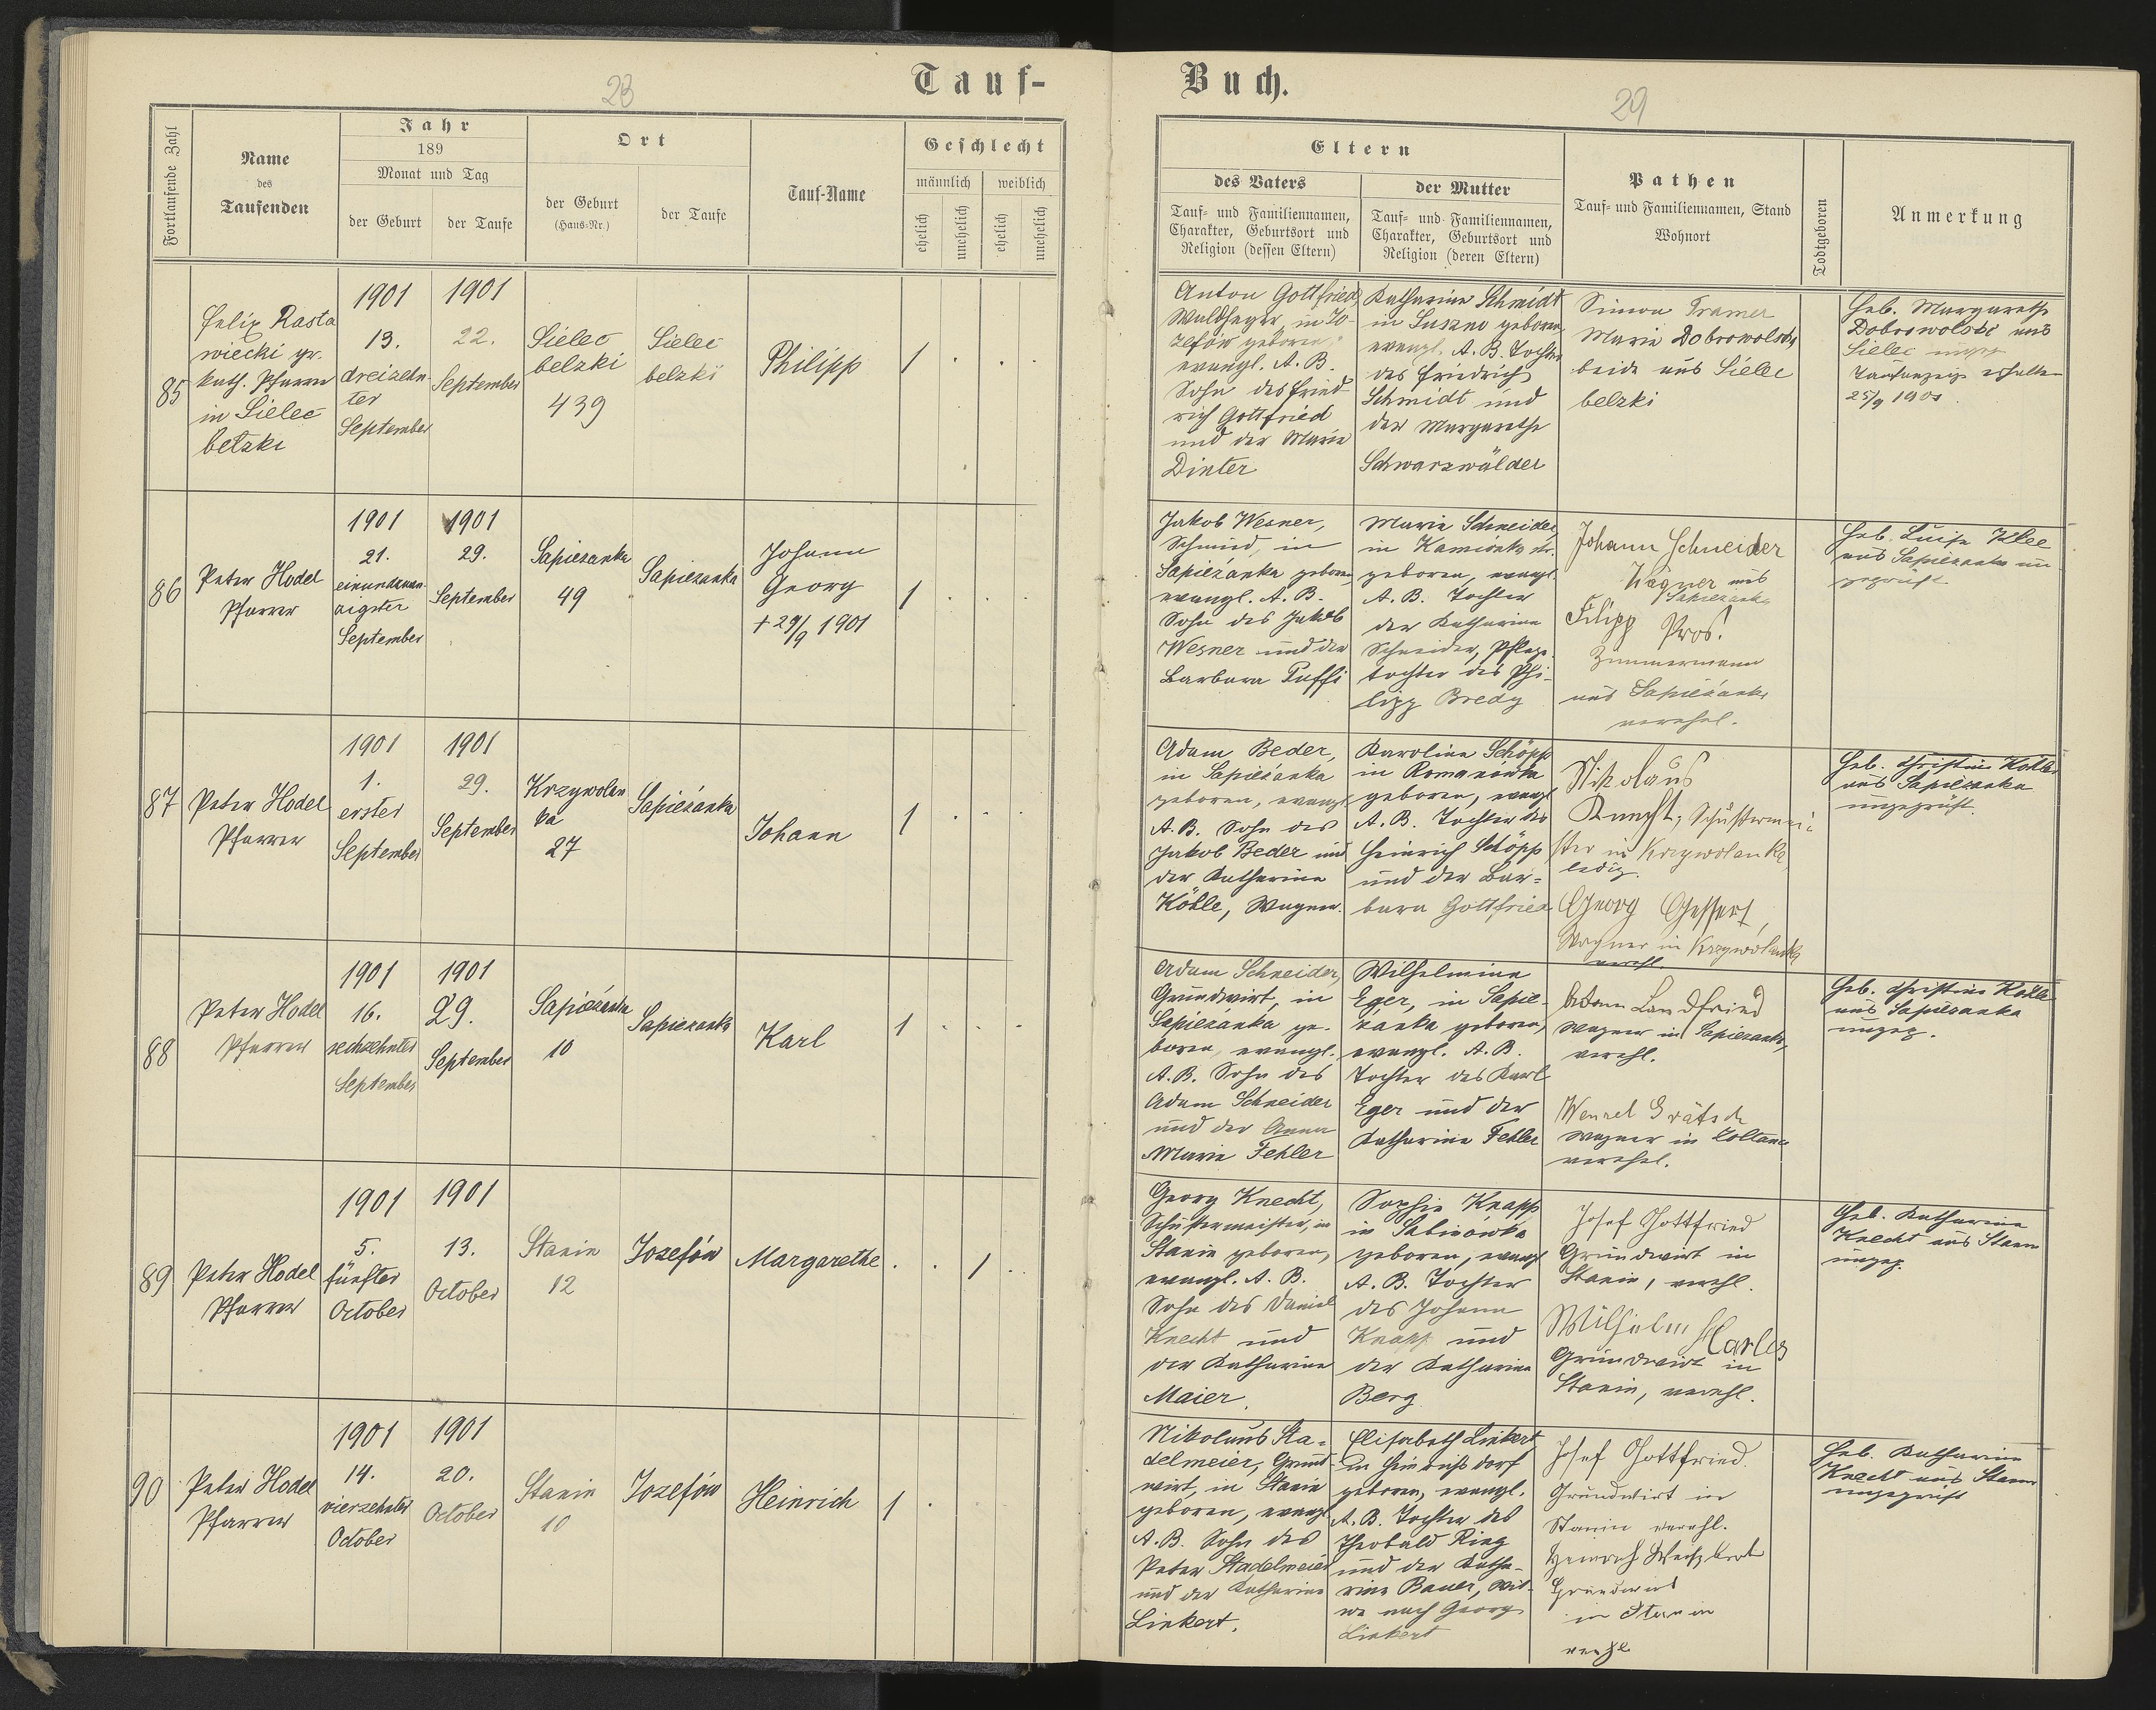 23
Tauf-
Fortlaufende Zahl
Name
des
Taufenden
Jahr
189
Monat und Tag
der Geburt
der Taufe
Ort
der Geburt
(Haus-Nr.)
der Taufe
Tauf-Name
Geschlecht
männlich
weiblich
ehelich
unehelich
ehelich
unehelich
85
Felix Rasta
wiecki gr.
kath. Pfarrer
in Sielec
belzki
1901
13.
dreizehn
ter
September
1901
22.
September
Sielec
belzki
439
Sielec
belzki
Philipp
1 . . .
86
Peter Hodel
Pfarrer
1901
21.
einundzwan
zigster
September
1901
29.
September
Sapiezanka
49
Sapiezanka
Johann
Georg
+ 29/9 1901
1 . . .
87
Peter Hodel
Pfarrer
1901
1.
erster
September
1901
29.
September
Krzywolan
ka
27
Sapieżanka
Johann
1 . . .
88
Peter Hodel
Pfarrer
1901
16.
sechzehnter
September
1901
29.
September
Sapieżanka
10
Sapiezanka
Karl
1 . . .
89
Peter Hodel
Pfarrer
1901
5.
fünfter
October
1901
13.
October
Stanin
12
Jozefów
Margarethe
. . 1 .
90
Peter Hodel
Pfarrer
1901
14.
vierzehnter
October
1901
20.
October
Stanin
10
Jozefów
Heinrich
1 .
Buch.
29
Eltern
des Vaters
Tauf- und Familiennamen,
Charakter, Geburtsort und
Religion (dessen Eltern)
der Mutter
Tauf- und Familiennamen,
Charakter, Geburtsort und
Religion (deren Eltern)
Pathen
Tauf- und Familiennamen, Stand
Wohnort
Todtgeboren
Anmerkung
Anton Gottfried
Waldheger in Jo-
zefów geboren,
evangl. A. B.
Sohn des Fried
rich Gottfried
und der Marie
Dinter
Katharina Schmidt
in Suszno geboren
evangl. A. B. Tochter
des Friedrich
Schmidt und
der Margarethe
Schwarzwälder
Simon Tramer
Maria Dobrowolski
beide aus Sielec
belzki
Heb. Margarethe
Dobrowolski aus
Sielec ungep
Taufanzeige erhalten
25/9 1901.
Jakob Wesner,
Schmied, in
Sapieżanka geboren
evangl. A. B.
Sohn des Jakob
Wesner und der
Barbara Puffi
Maria Schneider
in Kamionka str.
geboren, evangl.
A. B. Tochter
der Katharina
Schneider, Pflege
tochter des Phi-
lipp Bredy
Johann Schneider
Wagner aus
Sapiezanka
Filipp Pros.
Zimmermann
aus Sapieżanka
verehel.
Heb. Luise Klee
aus Sapiezanka un
geprüft
Adam Beder,
in Sapieżanka
geboren, evangl.
A. B. Sohn des
Jakob Beder und
der Katharina
Köhle, Wagner.
Karolina Schöpp
in Romanówka
geboren, evangl
A. B. Tochter des
Heinrich Schöpp
und der Bar-
bara Gottfried
Nikolaus
Knecht, Schustermei-
ster in Krzywolanka,
ledig.
Georg Gessert,
Wagner in Krzywolanka
verehl.
Heb. Christine Köhle
aus Sapiezanka
ungeprüft.
Adam Schneider,
Grundwirt, in
Sapieżanka ge-
boren, evangl.
A. B. Sohn des
Adam Schneider
und der Anna
Maria Fehler
Wilhelmine
Eger, in Sapie-
żanka geboren,
evangl. A. B.
Tochter des Karl
Eger und der
Katharina Fehler
Adam Landfried
Wagner in Sapiezanka,
verehl.
Wenzel Grätsch
Wagner in
verehel.
Heb. Christine Köhle
aus Sapiezanka
ungep.
Georg Knecht,
Schustermeister, in
Stanin geboren,
evangl. A. B.
Sohn des Daniel
Knecht und
der Katharina
Maier.
Sophie Knapp
in Sabinówka
geboren, evangl
A. B. Tochter
des Johann
Knapp und
der Katharina
Berg
Josef Gottfried
Grundwirt in
Stanin, verehl.
Wilhelm Harlos
Grundwirt in
Stanin, verehl.
Heb. Katharina
Knecht aus Stanin
ungep.
Nikolaus Sta-
delmeier, Grund-
wirt, in Stanin
geboren, evangl
A. B. Sohn des
Peter Stadelmeier
und der Katharina
Linkert.
Elisabeth Linkert
in Heinrichsdorf
geboren, evangl.
A. B. Tochter des
Theobald Ring
und der Katha-
rina Bauer, Wit-
we nach Georg
Linkert
Josef Gottfried.
Grundwirt in
Stanin verehl.
Heinrich
Grundwirt
in Stanin
verehl
Heb. Katharina
Knecht aus Stanin
ungeprüft